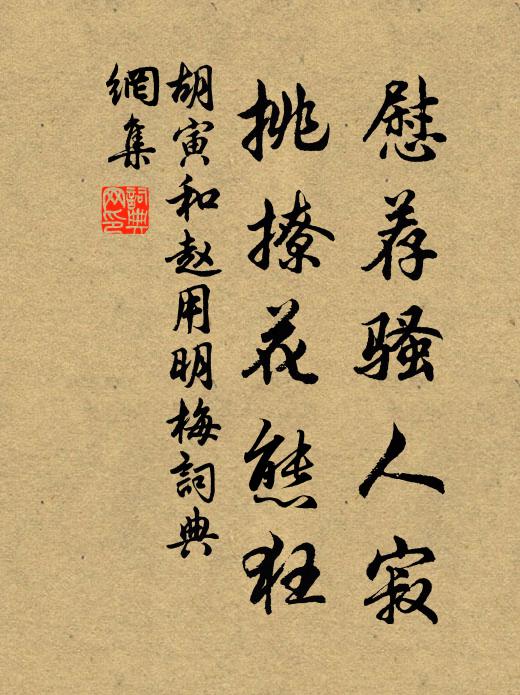 慰荐骚人寂
挑撩花態狂
胡寅和赵用明梅詞典
網集
詞典
网印